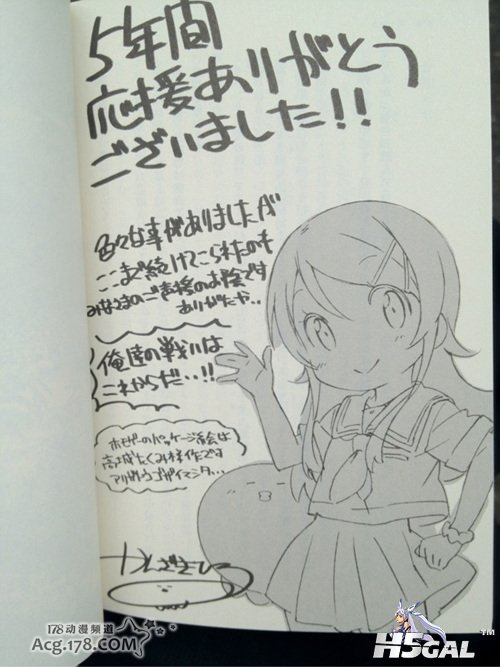 5年間
応援ありがとう
ございました!!
色々な事がありましたが
ここまで続けてこられたのも
みなさまのご声援のお陰です
ありがたや..
俺達の戦いは
これからだ..!!
ホモゲーのパッケージ絵は
高城たくみ様作です
アリガトウゴザイマシタ...
かんざきひろ
178动漫频道
Acg.178.com
H5GAL
TM